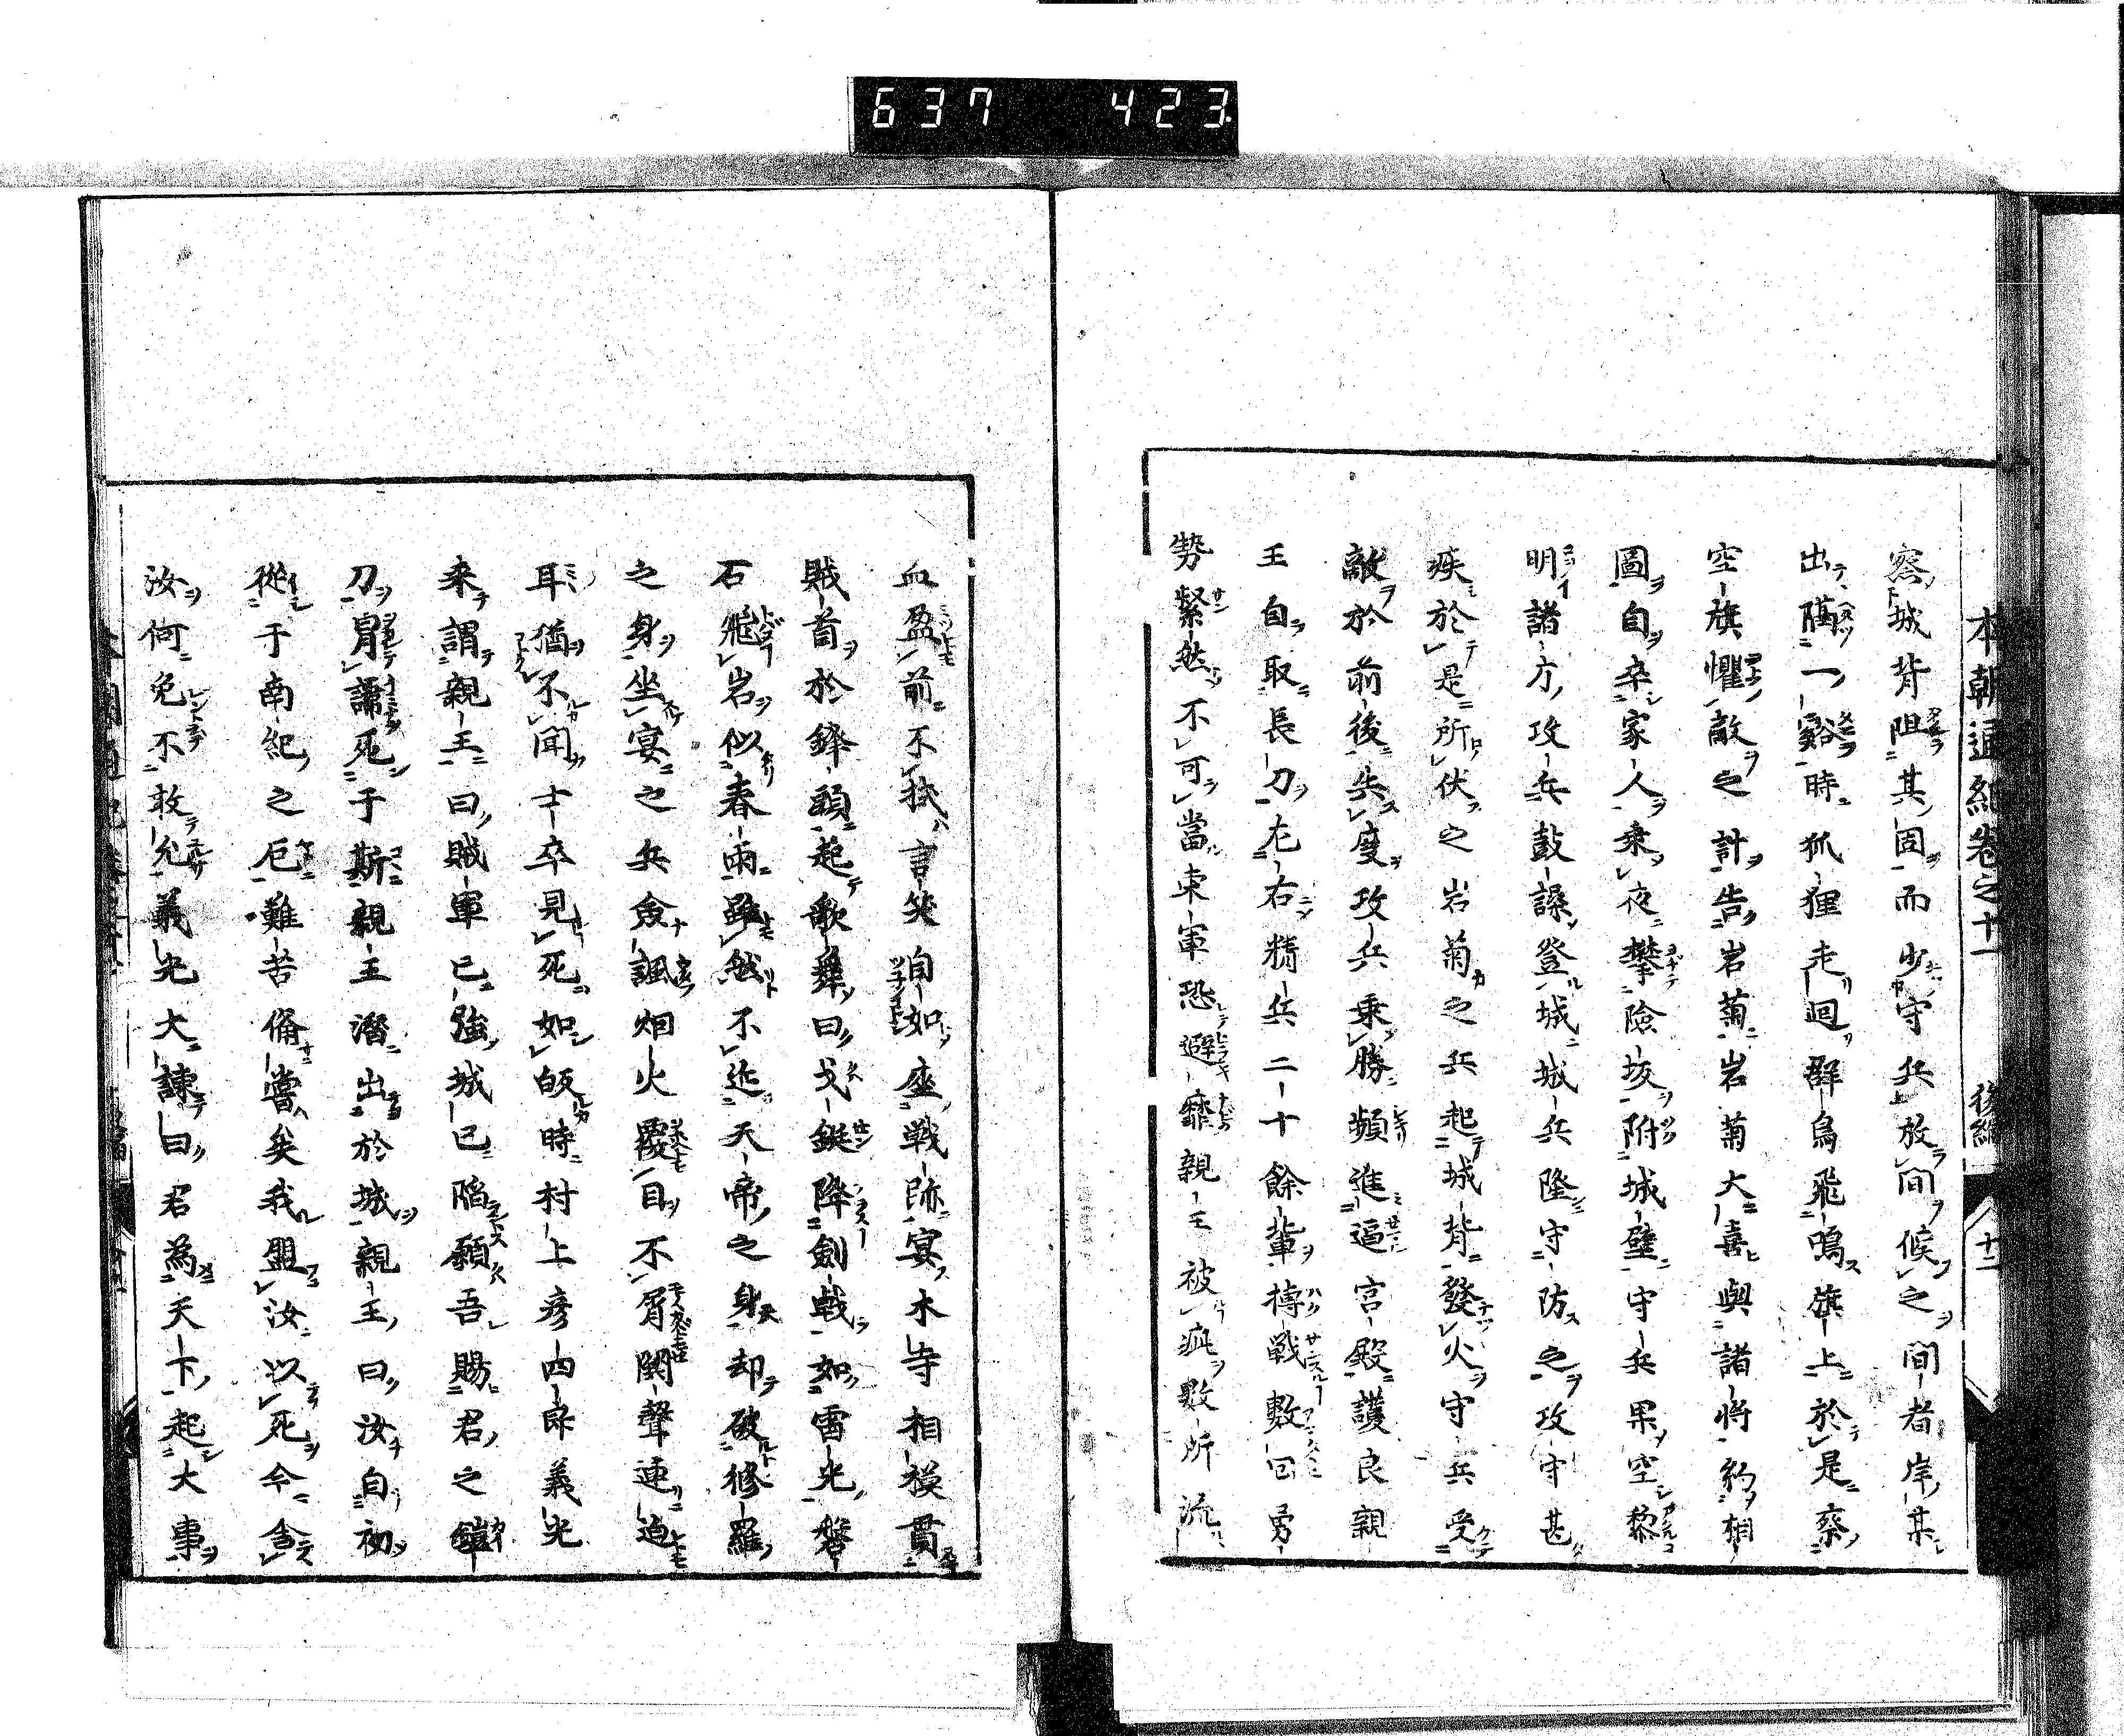 637 423
本朝通紀卷之十一 後編 十二
察城背阻其固而少守兵放間候之間者岸某
出隔一谿時狐狸走廻群鳥飛鳴旗上於是察
空旗懼敵之計告岩菊岩菊大喜與諸將約相
圖自卒家人乘夜攀險坂附城壁守兵果空黎
明諸方攻兵鼓譟登城城兵隆守防之攻守甚
疾於是所伏之岩菊之兵起城背發火守兵受
敵於前後失度攻兵乘勝頻進逼宮殿護良親
王自取長刀左右精兵二十餘輩搏戰數回勇
勢緊然不可當東軍恐避靡親王被疵數所流
血盈前不拭言笑自如座戰跡宴木寺相模貫
賊首於鋒頭起歌舞曰戈鋋降劍戟如雷光磐
石飛岩似春雨雖然不近天帝之身却破修羅
之身坐宴之兵僉諷烟火覆目不屑鬨聲連迫
耳猶不聞士卒見死如皈時村上彦四郎義光
来謂親王曰賊軍已強城已陷願吾賜君之鎧
刀冑謙死于斯親王潛出於城親王曰汝自初
從于南紀之厄難苦備嘗矣我盟汝以死今舍
汝何免不敢允義光大諫曰君為天下起大事